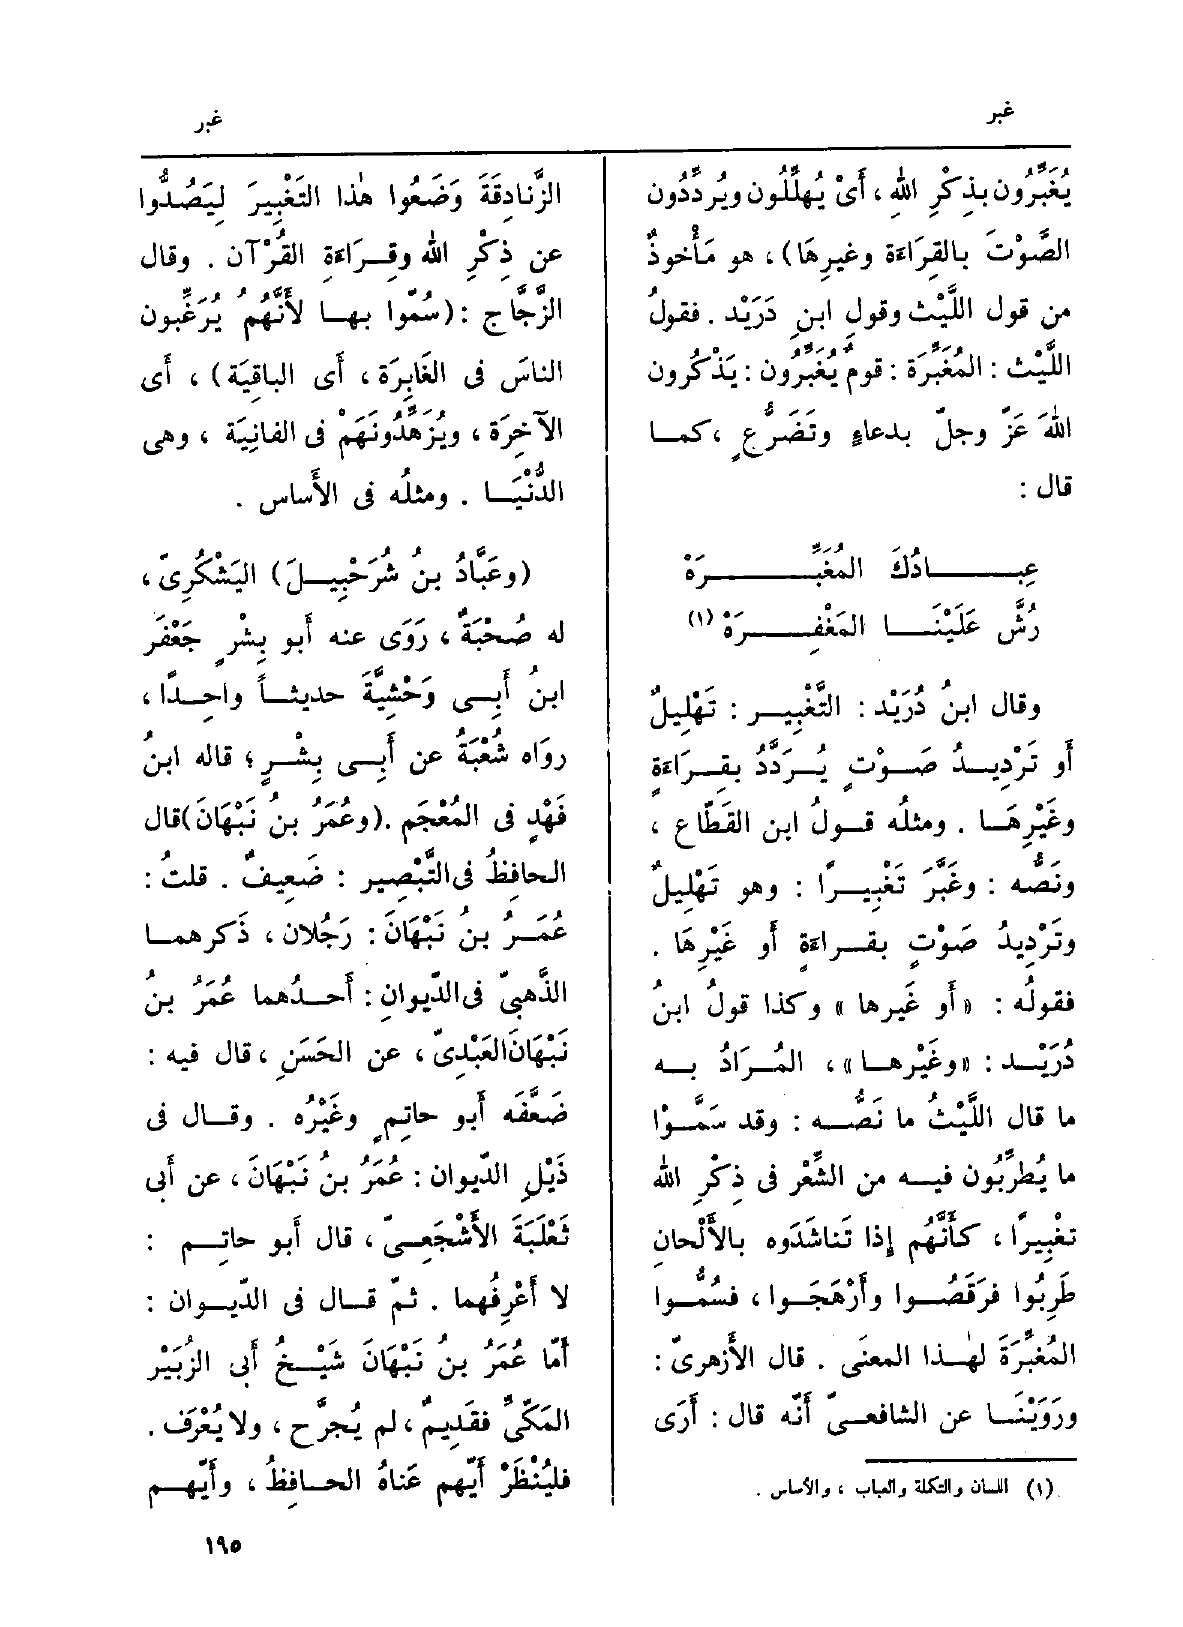 غبر
غبر
يُغَبِّرُون بذِكْرِ اللهِ ، أَىْ يُهلِّلُون ويُردِّدُون
الصَّوْتَ بالقِرَاءَة وغيرِها) ، هو مَأْخوذٌ
من قول اللَّيْث وقولِ ابنِ دَرَيْد . فقولُ
اللَّيْث : المُغَبِّرَة : قومٌ يُغَبِّرُون : يَذْكُرون
اللهَ عَزّ وجلّ بدعاءٍ وتَضَرُّعٍ ، كمـا
قال :
عِبـــادُكَ المُغَبِّـــرَهْ
رُشَّ عَلَيْنَــا المَغْفِـــرَهْ (١)
وقال ابنُ دُرَيْد : التَّغْبِيـر : تَهْلِيلٌ
أَو تَرْدِيـدُ صَـوْتٍ يُـرَدَّدُ بقِـرَاءَةٍ
وغَيْرِهَـا . ومثلُه قـولُ ابن القَطّاع ،
ونَصُّه : وغَبَّرَ تَغْبِيـرًا : وهو تَهْلِيلٌ
وتَرْدِيدُ صَوْتٍ بقـراءَةٍ أَو غَيْرِهَا .
فقولُه : « أَو غَيرها » وكذا قولُ ابنُ
دُرَيْـد : «وغَيْرهـا» ، المُـرَادُ بـه
ما قال اللَّيْثُ ما نَصُّـه : وقد سَمَّـوْا
ما يُطرِّبُون فيـه من الشِّعْر فى ذِكْرِ الله
تغْبِيرًا ، كأَنَّهُم إِذا تَناشَدُوه بالأَلْحانِ
طَرِبُوا فرَقَصُـوا وأَرْهَجَـوا ، فسُمُّـوا
المُغَبِّرَةَ لهٰـذا المعنَى . قال الأَزهرىّ :
ورَوَيْنَـا عن الشافعـىّ أَنّه قال : أَرَى
(١) اللسان والتكملة والعباب ، والأساس .
الزَّنادِقَةَ وَضَعُوا هٰذا التَغْبِيرَ لِيَصُدُّوا
عن ذِكْرِ الله وقِـرَاءَةِ القُرْآن . وقال
الزَّجّاج : (سُمّوا بهـا لأَنَّهُمْ يُرَغِّبون
الناسَ فى الغَابِرَة ، أَى الباقِيَة) ، أَى
الآخِرَة ، ويُزَهِّدُونَهُمْ فى الفانِيَة ، وهى
الدُّنْيَـا . ومثلُه فى الأَساس .
(وعَبَّادُ بنُ شُرَحْبِيـلَ) اليَشْكُرِىّ ،
له صُحْبَةٌ ، رَوَى عنه أَبو بِشْرٍ جَعْفَر
ابنُ أَبِـى وَحْشِيَّةَ حديثـاً واحِـدًا ،
روَاه شُعْبَةُ عن أَبِـى بِشْـرٍ ؛ قاله ابنُ
فَهْدٍ فى المُعْجَم . (وعُمَرُ بنُ نَبْهَانَ) قال
الحافِظُ فى التَّبْصِير : ضَعِيفٌ . قلتُ :
عُمَـرُ بنُ نَبْهَانَ : رَجُلان ، ذَكرهمـا
الذَّهبىّ فى الدِّيوانِ : أَحـدُهما عُمَرُ بنُ
نَبْهَانَ العَبْدِىّ ، عن الحَسَنِ ، قال فيه :
ضَعَّفَه أَبو حاتِمٍ وغَيْرُه . وقـال فى
ذَيْلِ الدّيوان : عُمَرُ بنُ نَبْهَانَ ، عن أَبى
ثَعْلَبَةَ الأَشْجَعِـىّ ، قال أَبو حاتِـم :
لا أَعْرِفُهما . ثمّ قـال فى الدّيـوان :
أَمّا عُمَرُ بن نَبْهَانَ شَيْـخُ أَبى الزُبَيْر
المَكِّىِّ فقَدِيمٌ ، لم يُجرَّح ، ولا يُعْرَف .
فليُنْظَرْ أَيّهم عَناهُ الحـافظُ ، وأَيّهـم
١٩٥